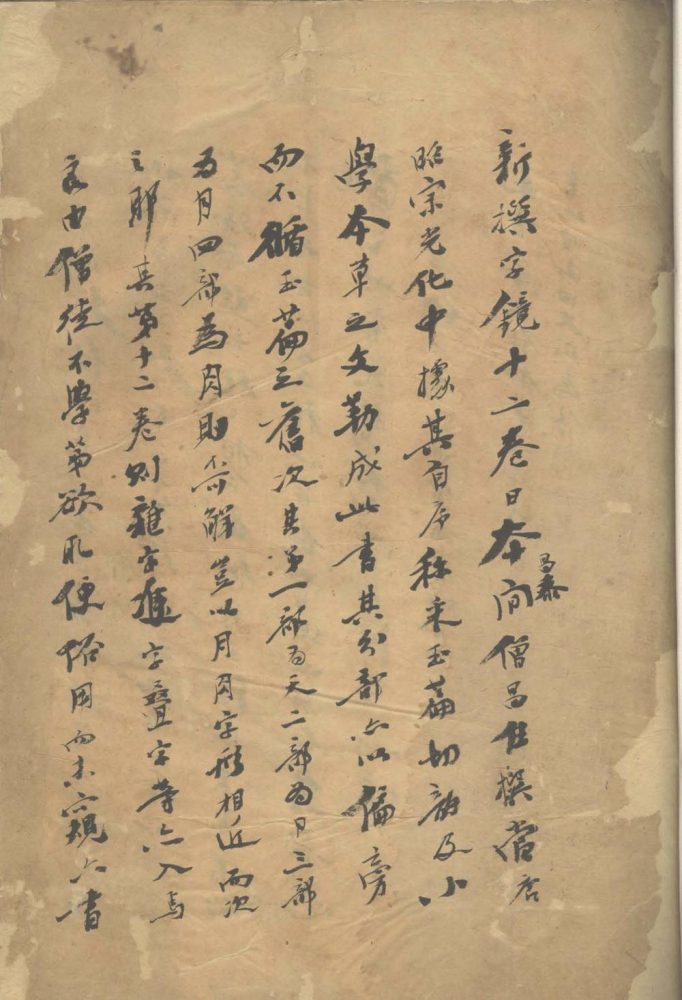 新撰字鏡十二卷日本昌泰間僧昌住撰當唐
昭宗光化中據其自序稱采玉篇切韻及小
學本草之文勒成此書其分部亦以偏旁
而不循玉篇之舊次其第一部為天二部為日三部
為月四部為肉則不可解豈以月肉字形相近而次
之耶其第十二卷則雜字字疊字等亦入焉
良由僧徒不學第欲取便俗用而未窺六書